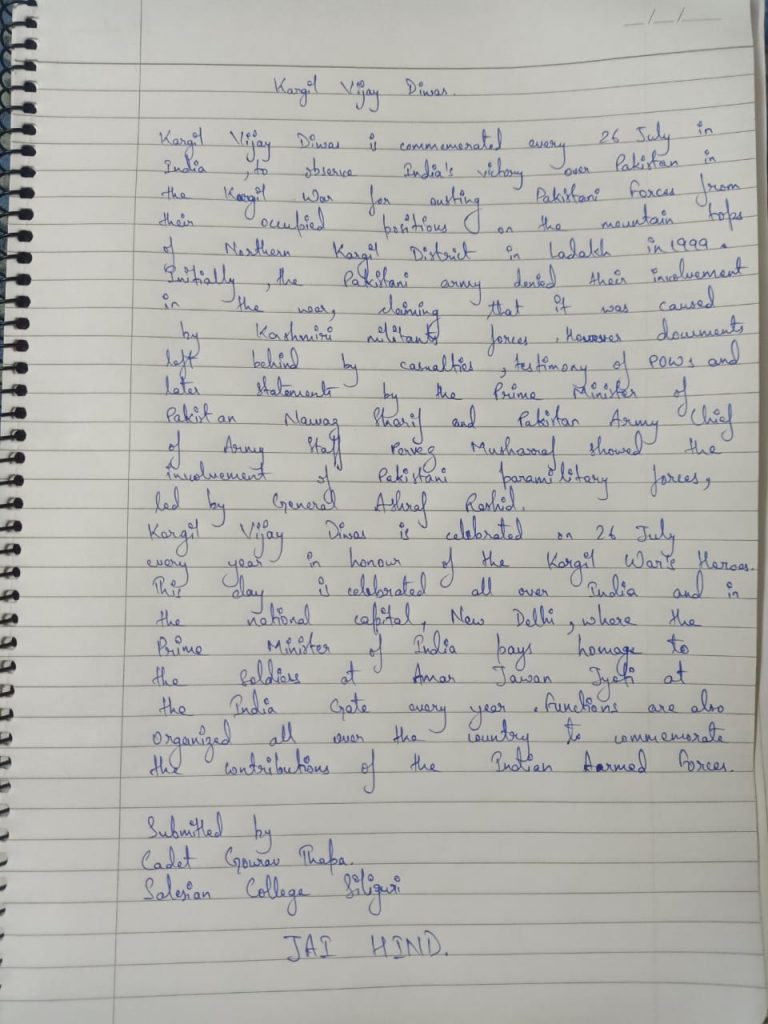 __/__/____
Kargil Vijay Diwas.
Kargil Vijay Diwas is commemorated every 26 July in
India, to observe India's victory over Pakistan in
the Kargil War for ousting Pakistani Forces from
their occupied positions on the mountain tops
of Northern Kargil District in Ladakh in 1999.
Initially, the Pakistani army denied their involvement
in the war, claiming that it was caused
by Kashmiri militants forces. However documents
left behind by casualties, testimony of POWs and
later statements by the Prime Minister of
Pakistan Nawaz Sharif and Pakistan Army Chief
of Army Staff Pervez Musharraf showed the
involvement of Pakistani paramilitary forces,
led by General Ashraf Rashid.
Kargil Vijay Diwas is celebrated on 26 July
every year in honour of the Kargil War's Heroes.
This day is celebrated all over India and in
the national capital, New Delhi, where the
Prime Minister of India pays homage to
the soldiers at Amar Jawan Jyoti at
the India Gate every year. Functions are also
organized all over the country to commemorate
the contributions of the Indian Aarmed Forces.
Submitted by
Cadet Gourav Thapa.
Salesian College Siliguri
JAI HIND.